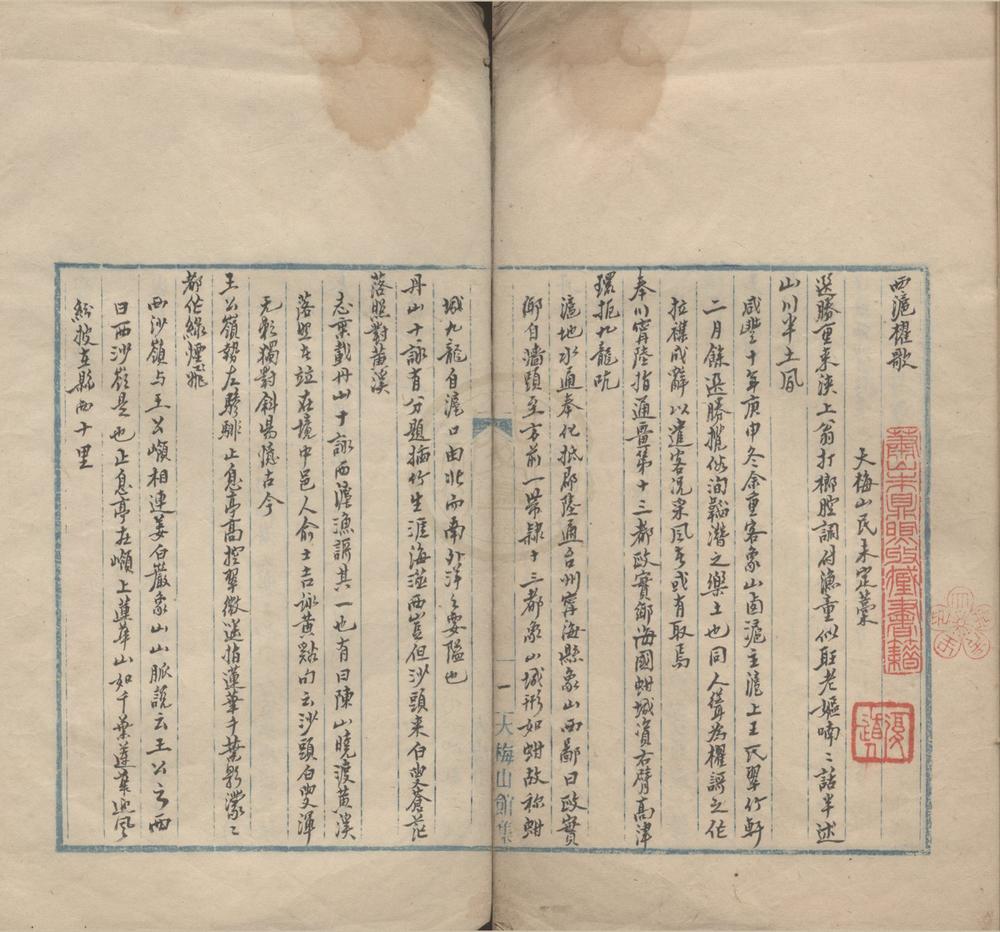 西滬櫂歌
大梅山民未定藁
選勝重來浹上翁打梆腔調付漁童似聞老嫗喃〻話半述
山川半土風
咸豐十年庚申冬余重客象山西滬主滬上王氏翠竹軒
二月餘選勝攬俗洵韜潛之樂土也同人聳為櫂謌之作
拉襍成辭以遣客況采風者或有取焉
奉川甯陸指通畺第十三都政實鄉海國蚶城資右臂高津
環扼九龍吭
滬地水通奉化抵郡陸通台州甯海縣象山西鄙曰政實
鄉自墻頭至方前一帶隸十三都象山城形如蚶故称蚶
城九龍自滬口由北而南外洋之要隘也
丹山十詠有分題插竹生涯海澨西豈但沙頭来白叟蒼茫
落照對黄溪
志乘載丹山十詠西滬漁謌其一也有曰陳山曉渡黄溪
落照在竝在境中邑人俞士吉詠黄點句云沙頭白叟渾
无彩獨對斜陽憶古今
王公嶺勢左驂騑止息亭髙控翠微遥指蓮華千葉影濛〻
都作綠煙飛
西沙嶺与王公嶺相連姜白巖象山山脈說云王公之西
曰西沙嶺是也止息亭在嶺上蓮華山如千葉蓮華迎風
紛披在縣西十里
一
大梅山館集
蕭山朱鼎煦收藏書籍